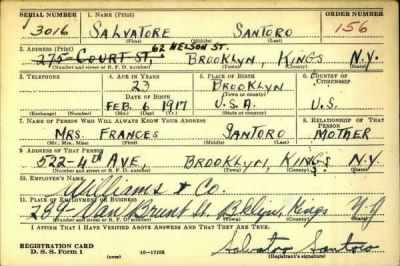 SERIAL NUMBER 1. NAME (Print) ORDER NUMBER
3016 SALVATORE SANTORO 156
(First) (Middle) (Last)
2. ADDRESS (Print) 62 NELSON ST.
275- COURT ST, BROOKLYN, KINGS N.Y.
(Number and street or R. F. D. number) (Town) (County) (State)
3. TELEPHONE 4. AGE IN YEARS 5. PLACE OF BIRTH 6. COUNTRY OF CITIZENSHIP
23 BROOKLYN
DATE OF BIRTH (Town or county)
FEB. 6 1917 U.S.A. U.S.
(Exchange) (Number) (Mo.) (Day) (Yr.) (State or country)
7. NAME OF PERSON WHO WILL ALWAYS KNOW YOUR ADDRESS 8. RELATIONSHIP OF THAT PERSON
MRS. FRANCES SANTORO MOTHER
(Mr., Mrs., Miss) (First) (Middle) (Last)
9. ADDRESS OF THAT PERSON
522-4th AVE, BROOKLYN, KINGS N.Y.
(Number and street or R. F. D. number) (Town) (County) (State)
10. EMPLOYER'S NAME
Williams & Co.
11. PLACE OF EMPLOYMENT OR BUSINESS
269- Van Brunt St. Bklyn, Kings N.Y
(Number and street or R. F. D. number) (Town) (County) (State)
I AFFIRM THAT I HAVE VERIFIED ABOVE ANSWERS AND THAT THEY ARE TRUE.
REGISTRATION CARD
D. S. S. Form 1 (over) Salvatore Santoro
(Registrant's signature)